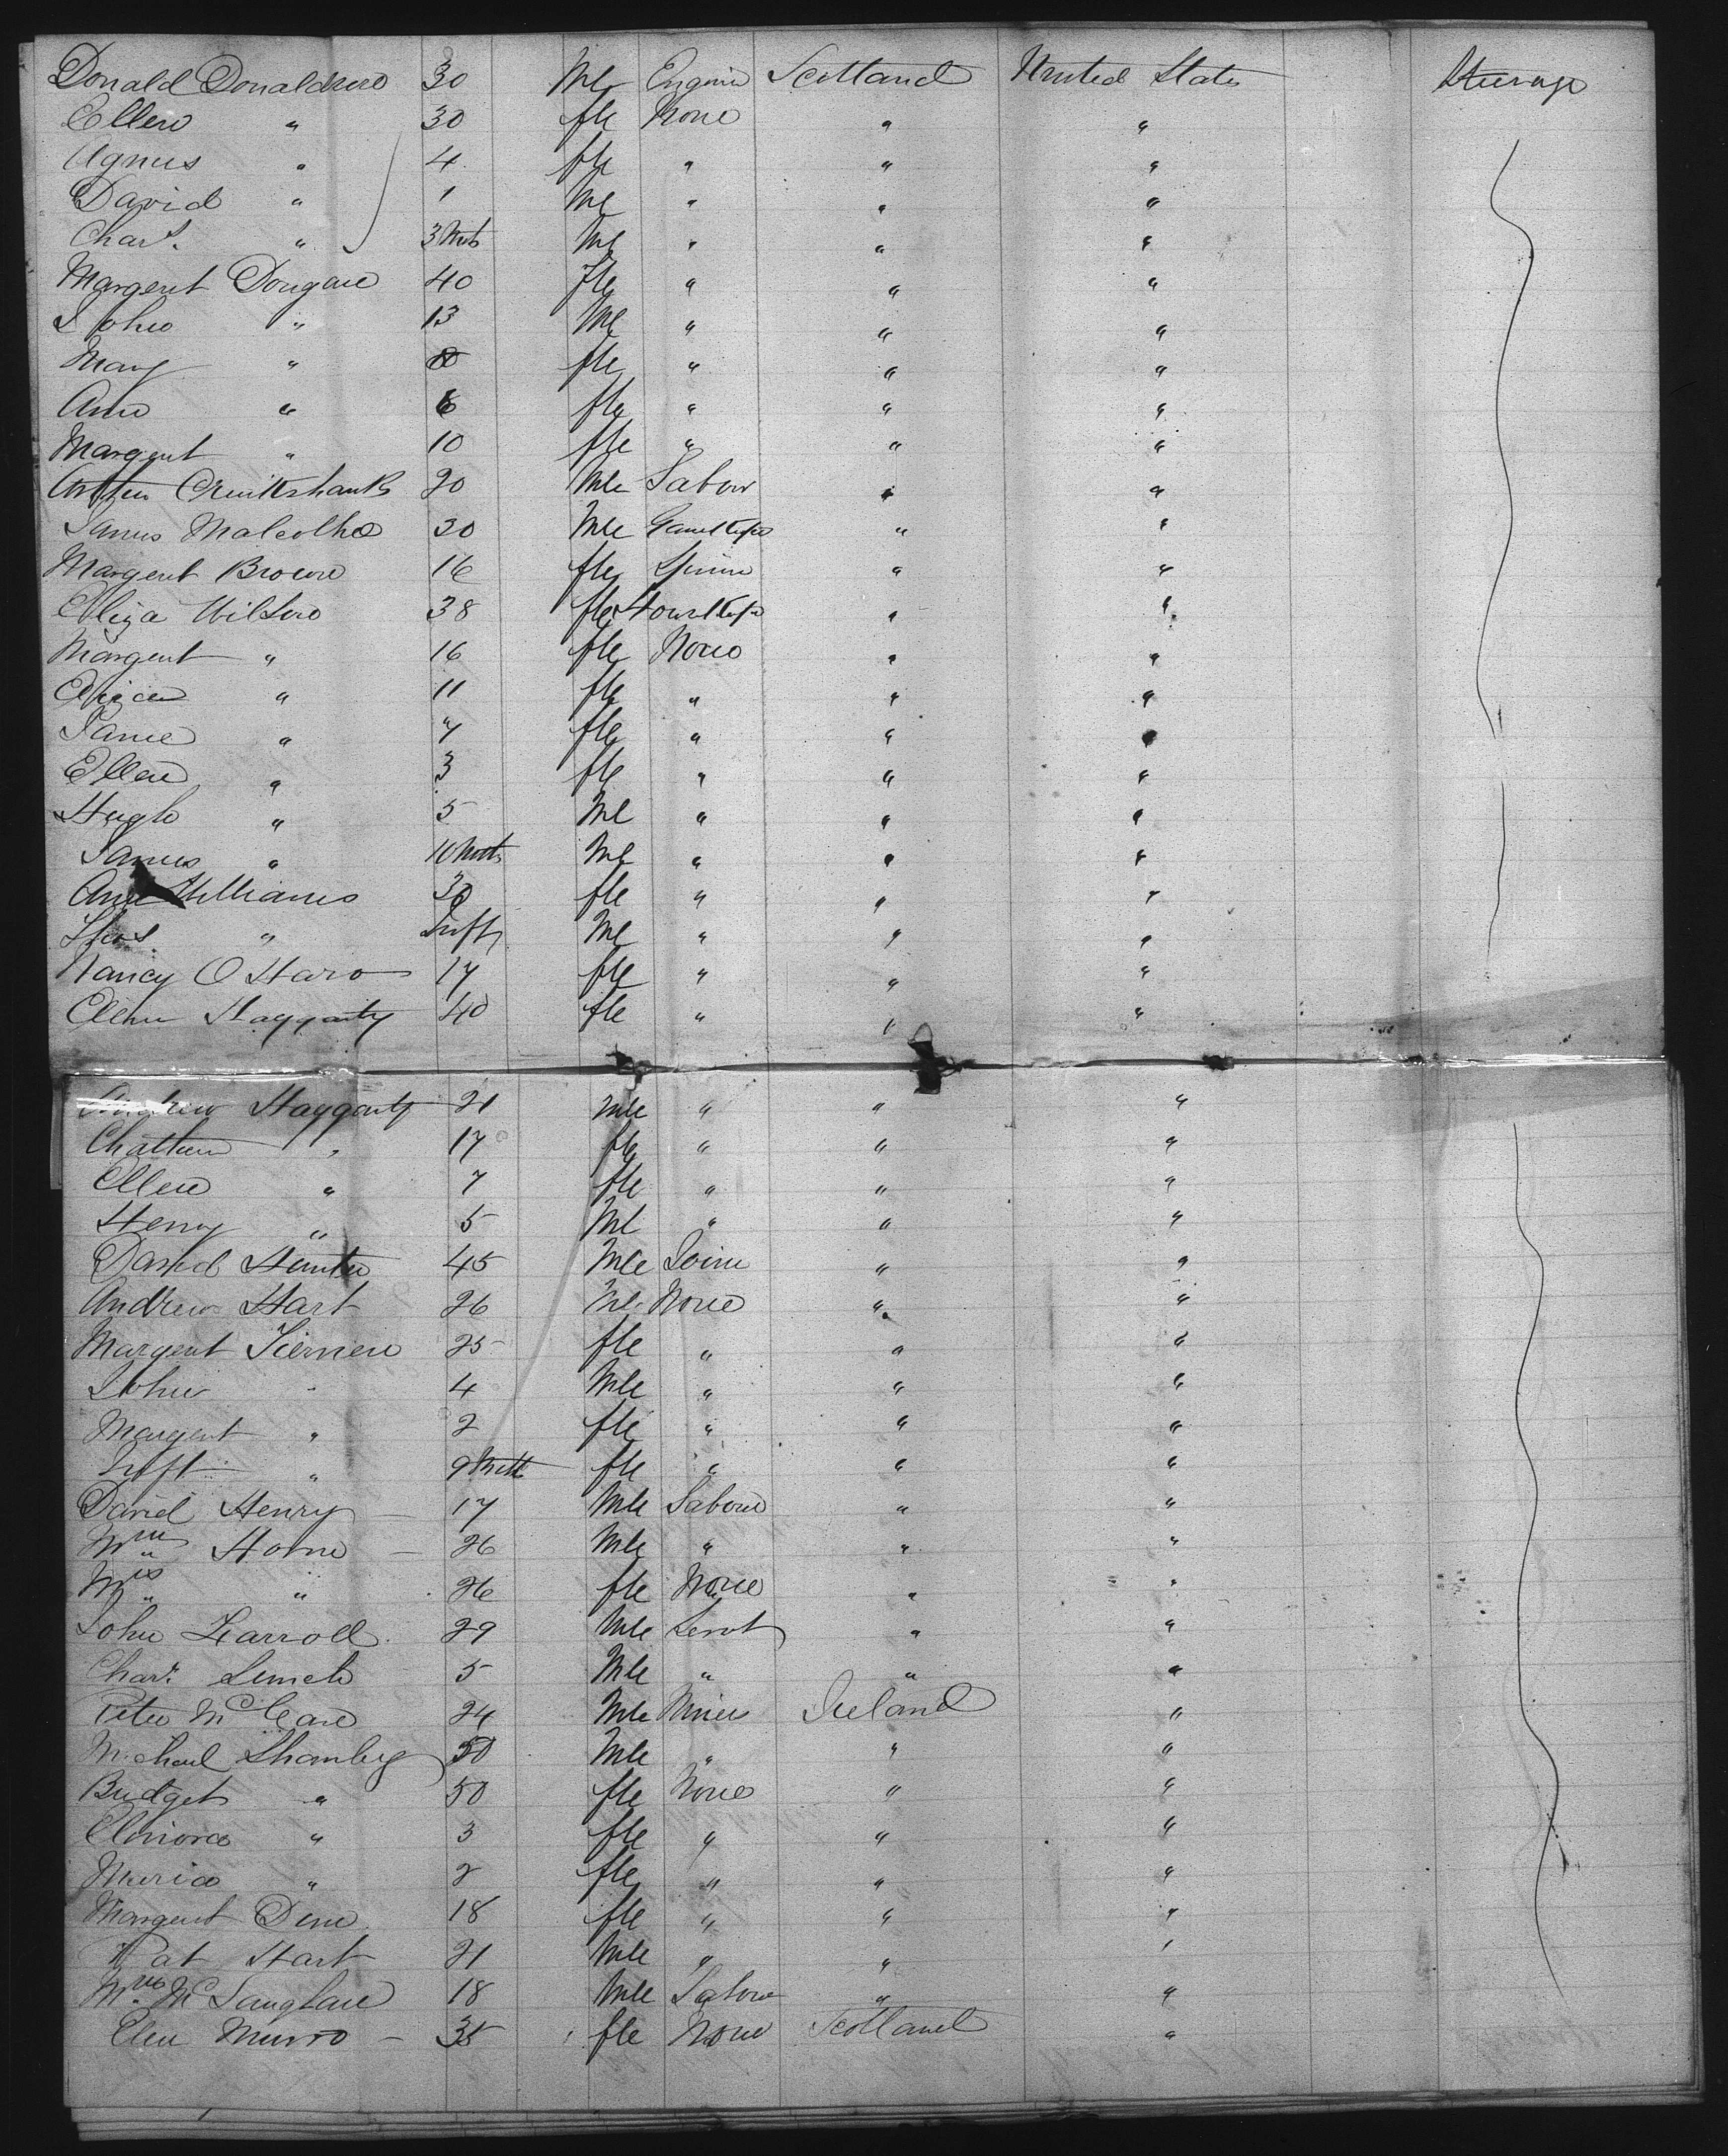 Donald Donaldson 30 Ml Engine Scotland United States Steerage
Ellen " 30 fle None " "
Agnus " 4 fle " " "
David " 1 Ml " " "
Chas. " 3 Mts Ml " " "
Margent Dougan 40 fle " " "
John " 13 Ml " " "
Mary " fle " " "
Ann " 6 fle " " "
Margent " 10 fle " " "
Cruikshanks 20 Mle Labour " "
James Malcolm 30 Mle " "
Margent Brown 16 fle Spinne " "
Eliza Wilson 38 fle " "
Margent " 16 fle None " "
" 11 fle " " "
Jane " 7 fle " " "
Ellen " 3 fle " " "
Hugh " 5 Ml " " "
James " 10 Mths Ml " " "
Ann Williams 30 fle " " "
" Inft Ml " " "
Nancy O Hara 17 fle " " "
Ellen Haggarty 40 fle " " "
Andrew Haggarty 21 Mle " " "
" 17 fle " " "
Ellen " 7 fle " " "
Henry " 5 Ml " " "
David Hunter 45 Mle Joine " "
Andrew Hart 26 Ml None " "
Margent Kiernen 25 fle " " "
John " 4 Mle " " "
Margent " 2 fle " " "
Inft " 9 Mths fle " " "
David Henry 17 Mle Laboue " "
Wm Horne 26 Mle " " "
Mrs " 26 fle None " "
John Karroll 29 Mle Servt " "
Chas. 5 Mle " " "
Peter McCare 24 Mle Miner Ireland "
Michael 50 Mle " " "
Bridget " 50 fle None " "
Elenora " 3 fle " " "
Maria " 2 fle " " "
Margent 18 fle " " "
Pat Hart 21 Mle " " "
18 Mle Labour " "
Elen Munro 35 fle None Scotland "